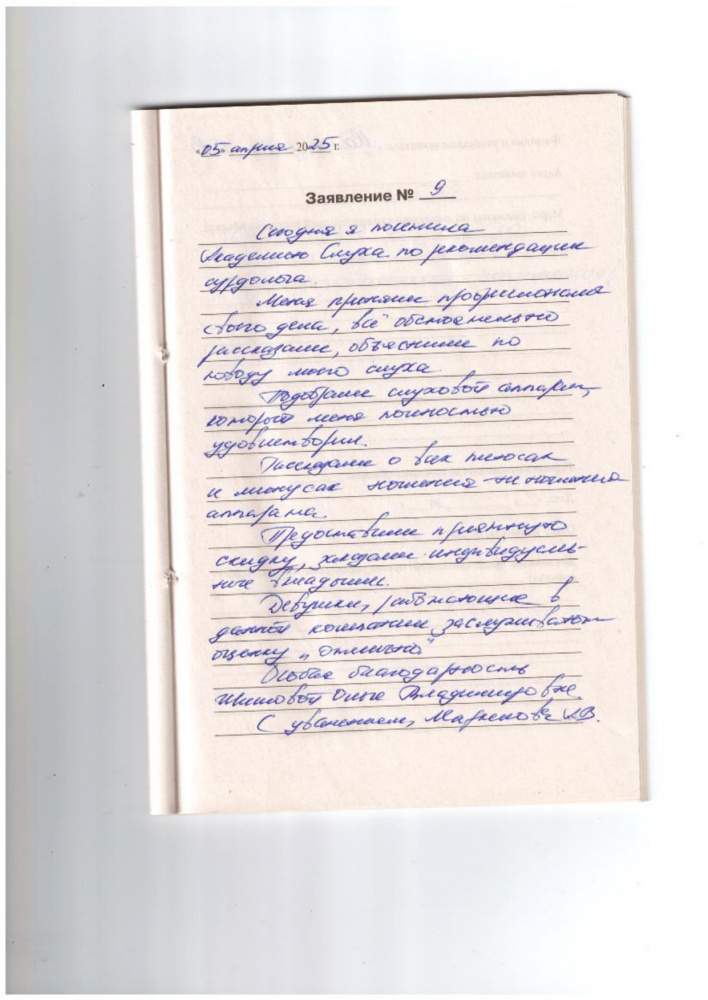 «05» апреля 2025 г.
Заявление № 9
Сегодня я посетила
Академию Слуха по рекомендации
сурдолога.
Меня приняли профессионалы
своего дела, всё обстоятельно
рассказали, объяснили по
поводу моего слуха
Подобрали слуховой аппарат,
который меня полностью
удовлетворил.
Рассказали о всех плюсах
и минусах ношения-неношения
аппарата.
Предоставили приятную
скидку, заказали индивидуаль-
ные вкладыши.
Девушки, работающие в
данной компании заслуживают
оценку „отлично"
Особая благодарность
Ольге Владимировне.
С уважением,